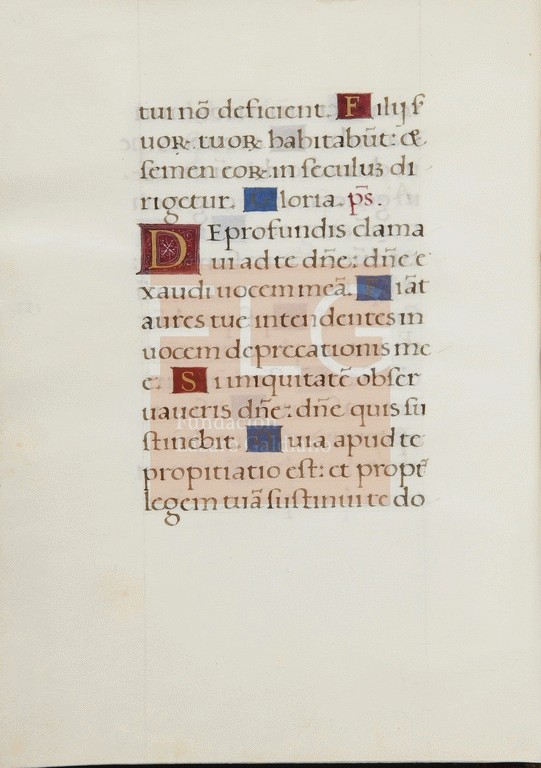 tui nõ deficient. Filij s
uoꝝ. tuoꝝ habitabũt: &
semen eoꝝ. in seculuʒ di
rigetur. Gloria. ps̃.
DE profundis clama
ui ad te dñe: dñe e
xaudi uocem meã. Fiãt
aures tue intendentes in
uocem deprecationis me
e: Si iniquitatẽ obser
uaueris dñe: dñe quis su
stinebit. Quia apud te
propitiatio est: et propt̃
legem tuã sustinui te do
FLG
Fundación
Lázaro Galdiano